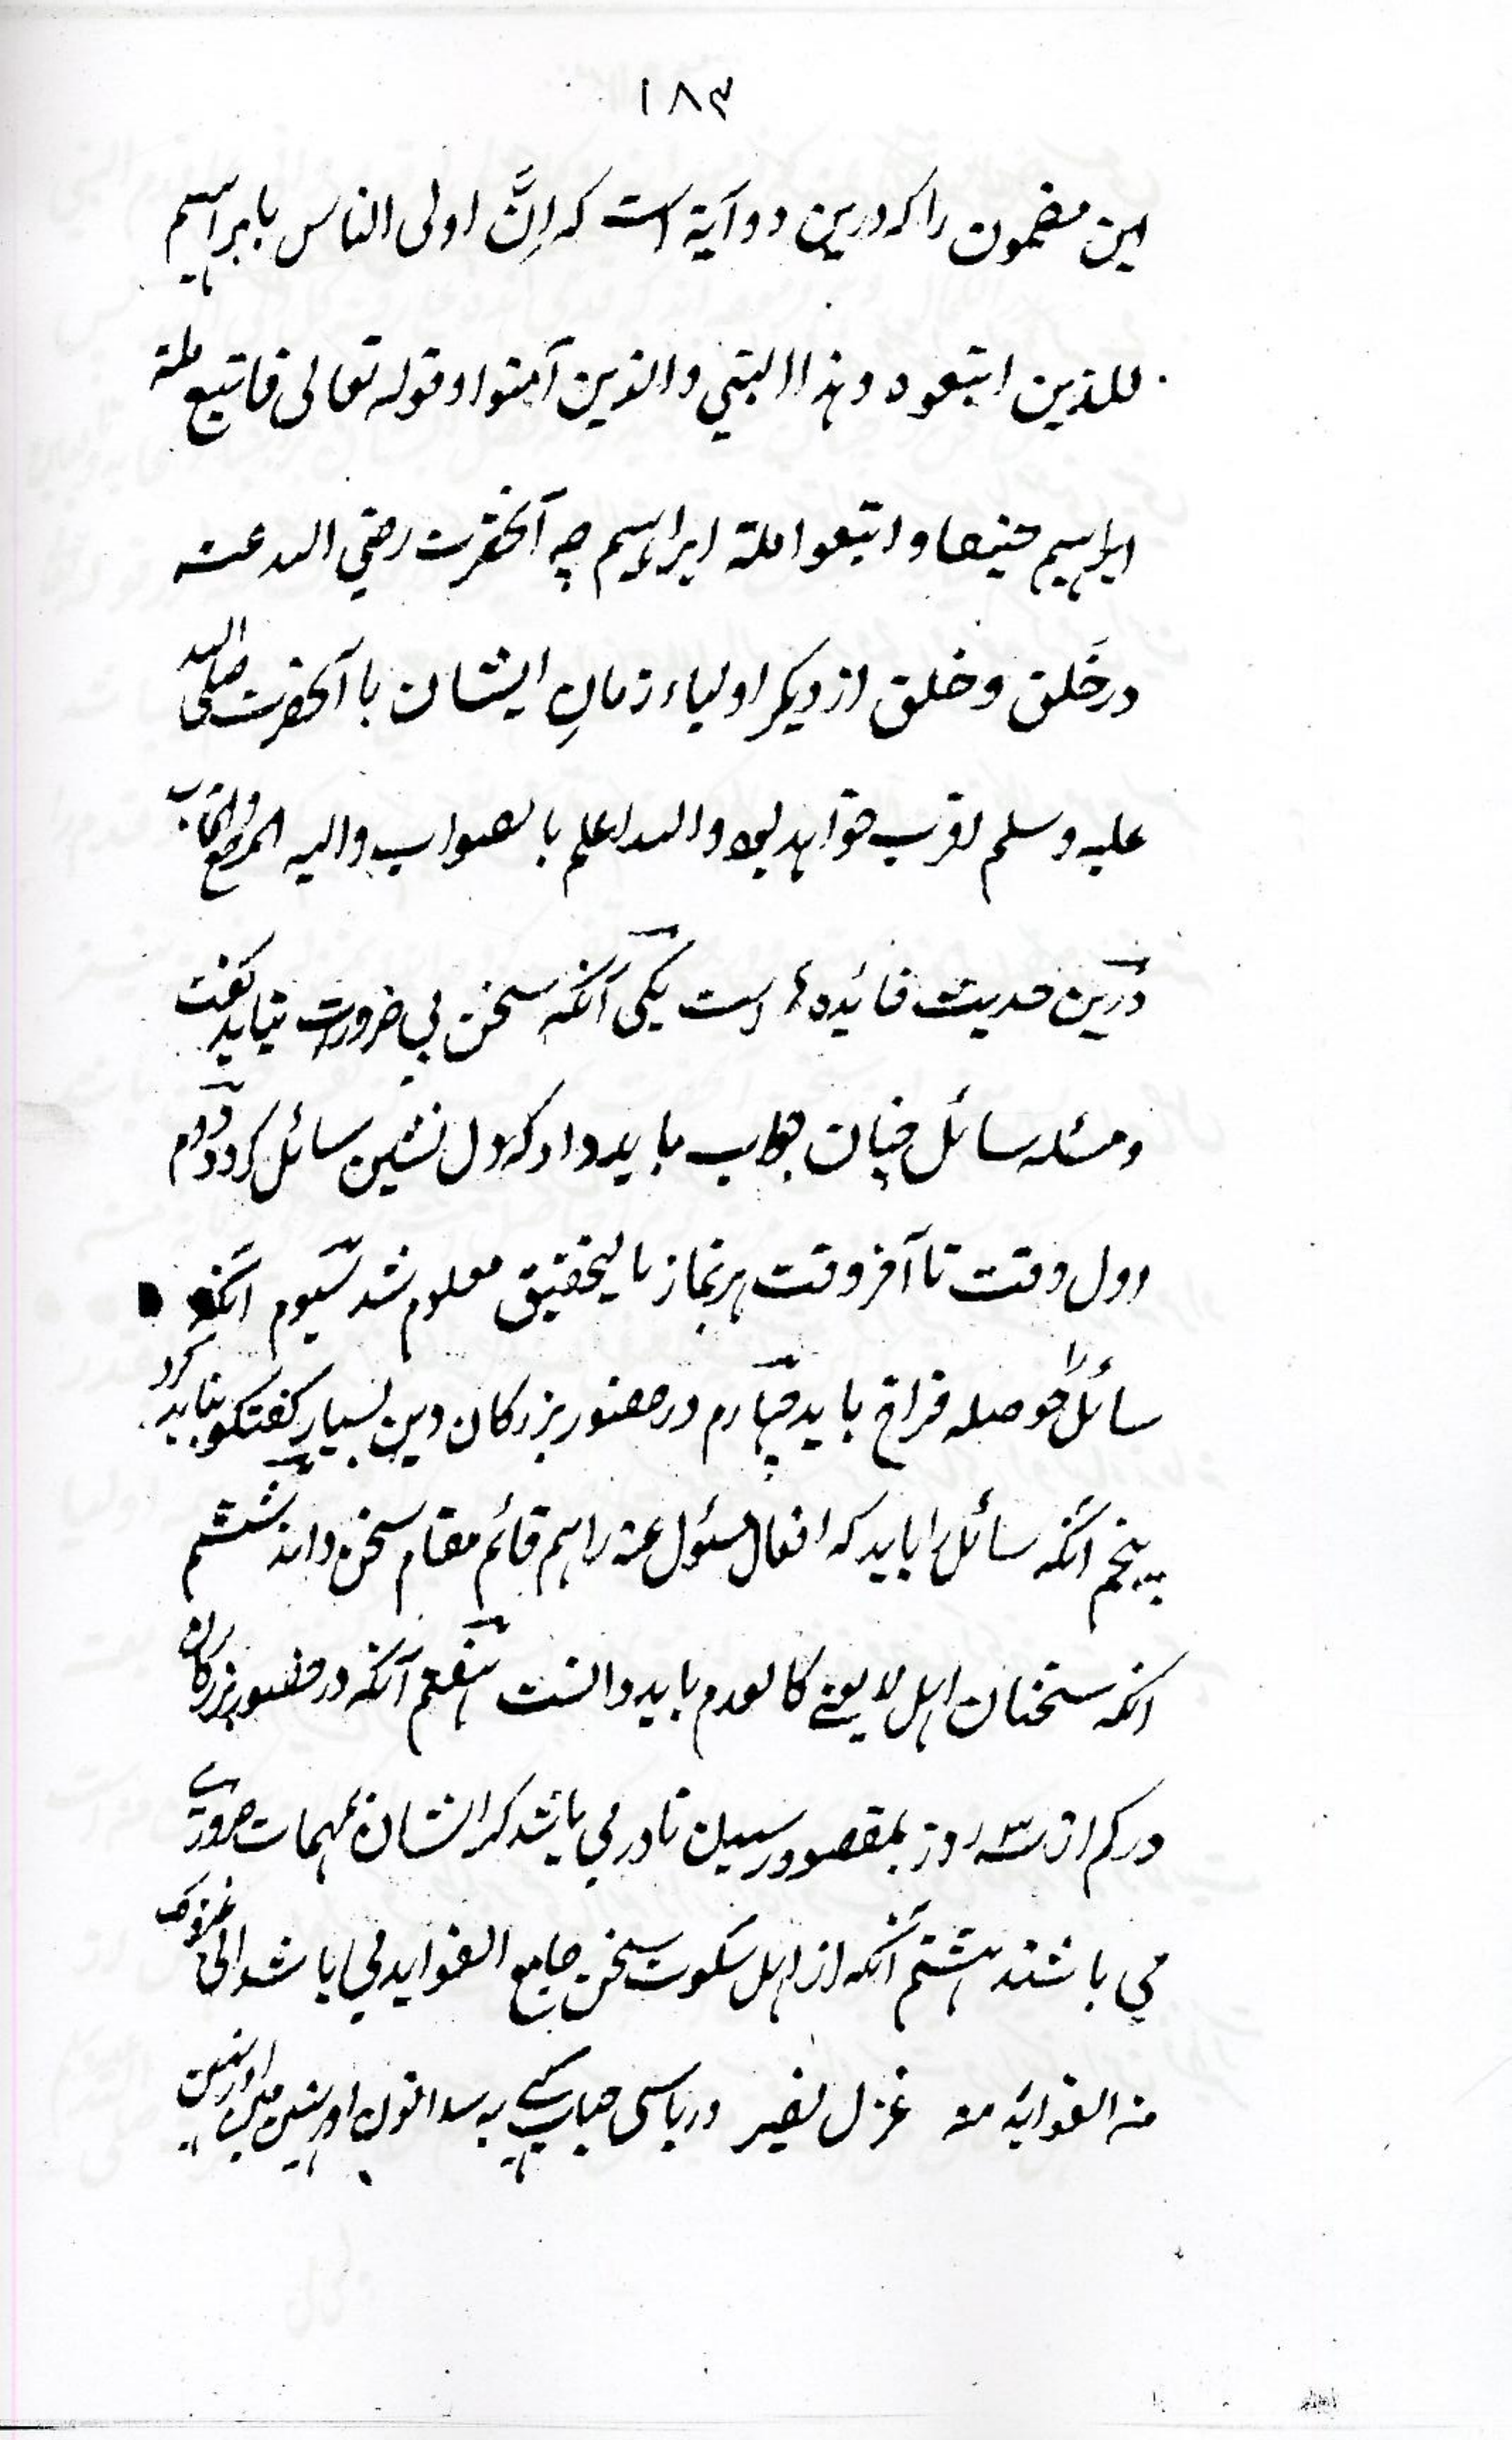 ۱۸۳
این مضمون را که درین دو آیة است که اِنَّ اولی الناس بابراہیم
للذین اتبعوہ و ہذا النبي والذین آمنوا و قوله تعالی فاتبع ملة
ابراہیم حنیفا و اتبعوا ملة ابراہیم چه آنحضرت رضي الله عنه
در خَلق و خلق از دیکر اولیاء زمانِ ایشان با آنحضرت صلی الله
علیه وسلم اقرب خواہد بود والله اعلم بالصواب والیه المرجع والمآب
درین حدیث فائدہ ها است یکی آنکه سخن بي ضرورت نباید کفت
و مسئله سائل چنان جواب باید داد که دل نشین سائل کردد دوم
اول وقت تا آخر وقت ہر نماز بالتحقیق معلوم شد سیوم آنکه
سائل را حوصله فراخ باید چہارم در حضور بزرکان دین بسیار کفتکو نباید کرد
پنجم آنکه سائل را باید که افعال مسئول عنه را ہم قائم مقام سخن داند ششم
آنکه سخنان اہل لایعنے کالعدم باید دانست ہفتم آنکه در حضور بزرکان
در کم از سه روز بمقصود رسیدن نادر مي باشد که ایشان بمہمات ضروری
مي باشند ہشتم آنکه از اہل سکوت سخن جامع الفواید مي باشد الی غیر ذلک
منه الفوائد منه غزل لغیر